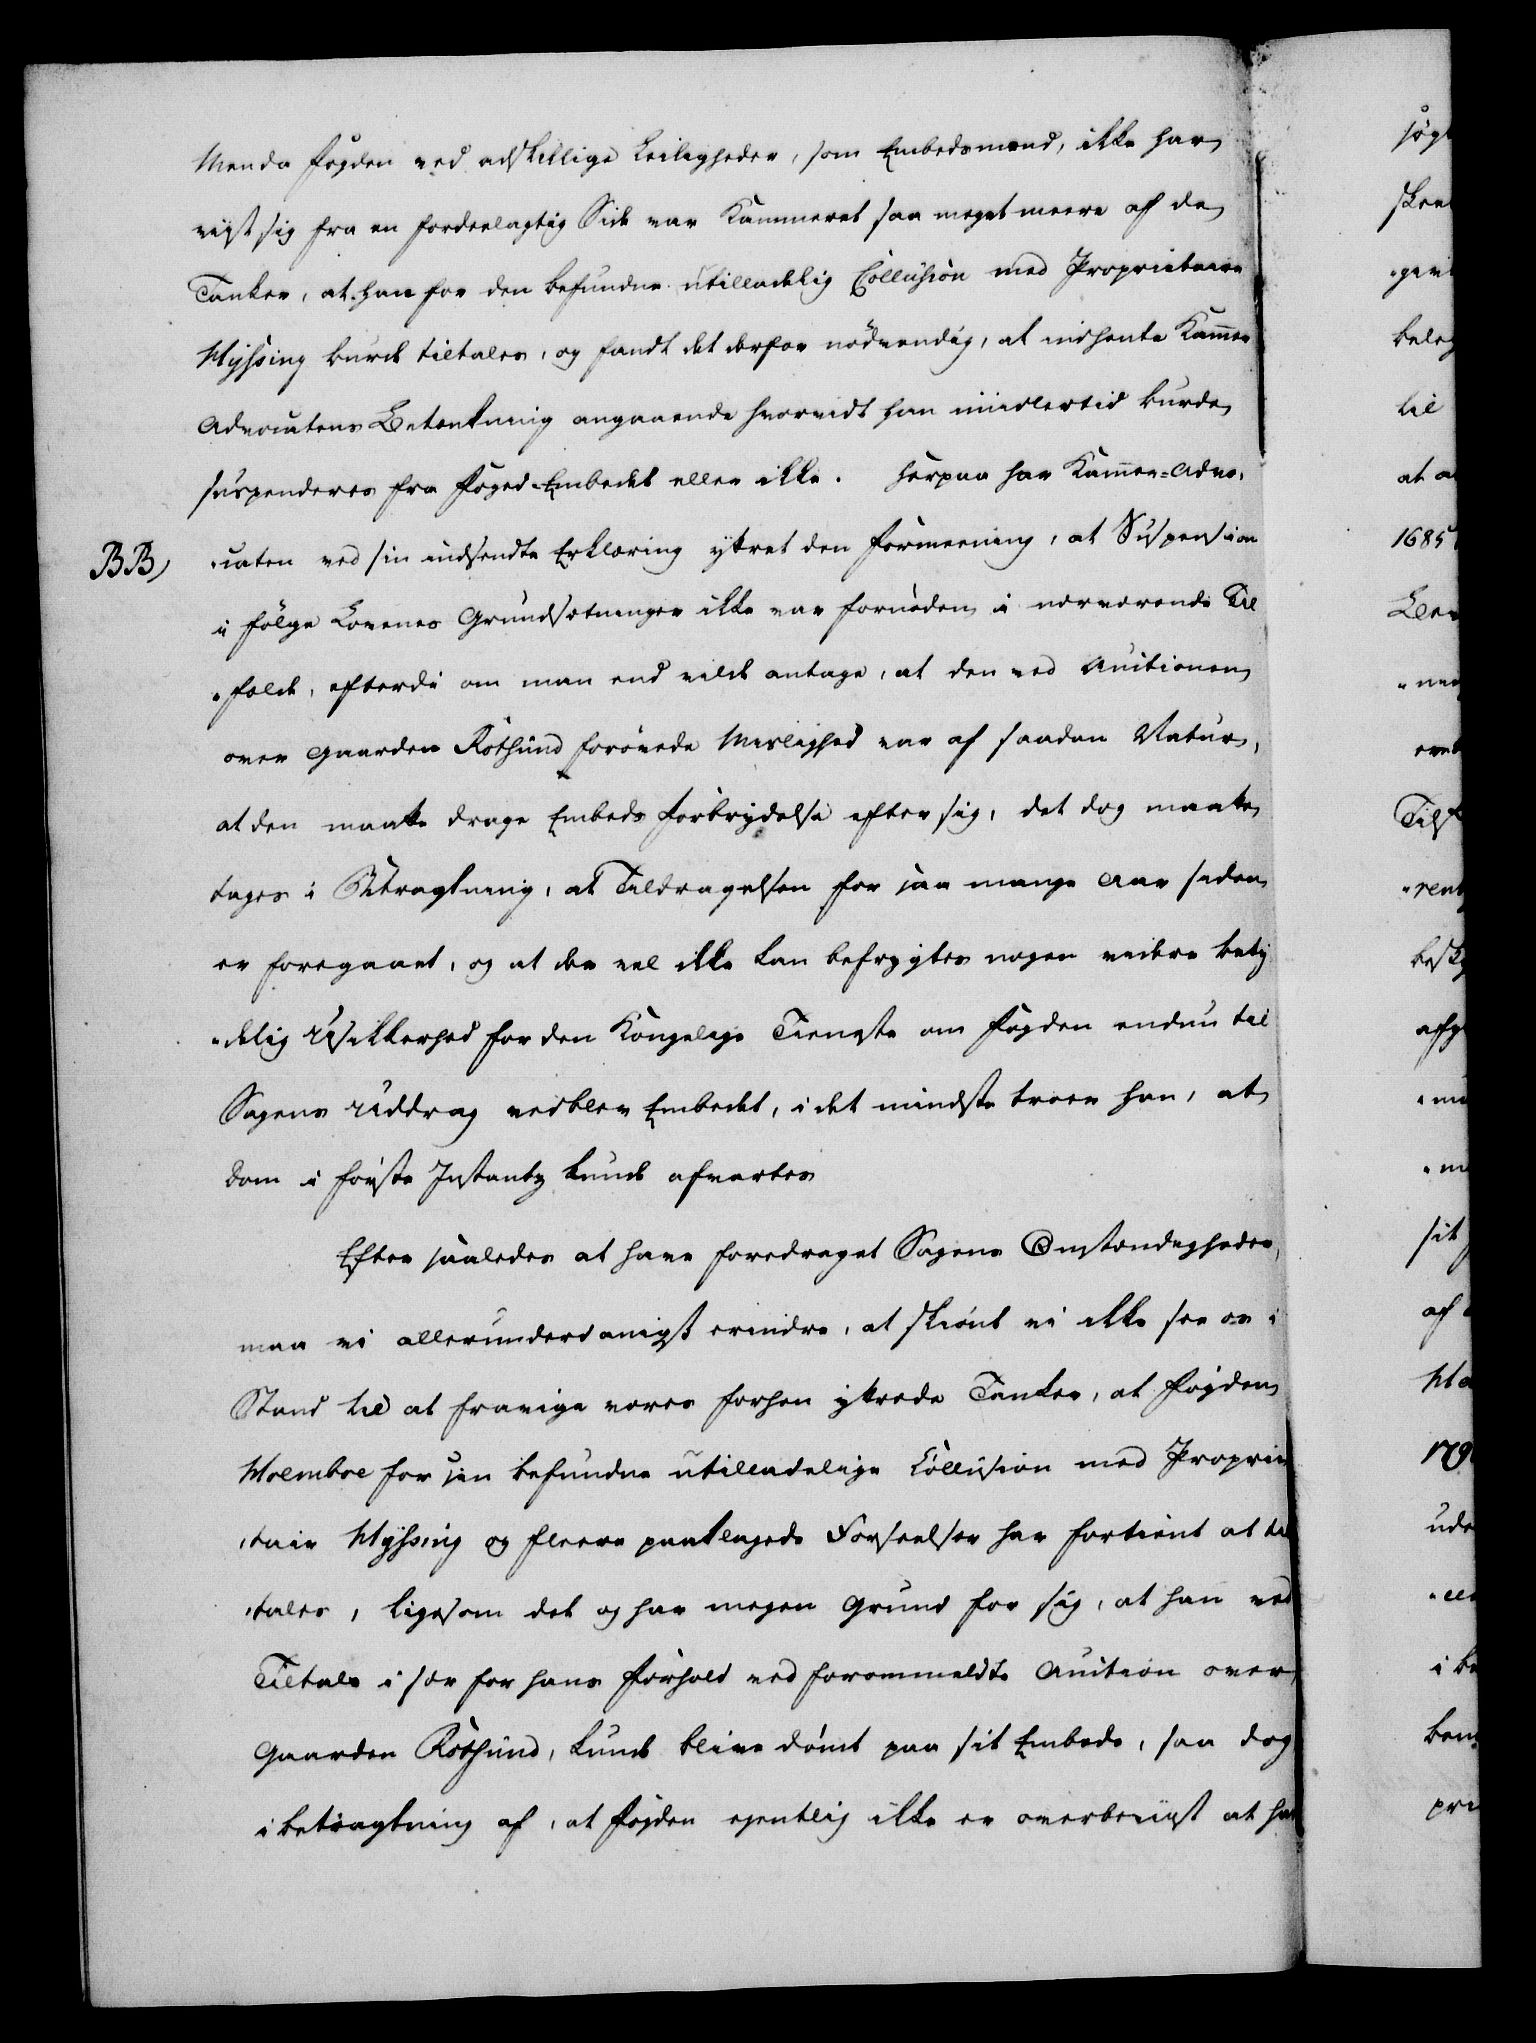 Menda Fogden ved adskillige Leiligheder, som Embedsmand, ikke har
viist sig fra en fordeelagtig Side var Kammeret saa meget meere af de
Tanker, at han for den befundne utilladelig Collusion med Proprietaire
Hyssing burde tiltales, og fandt det derfor nödvendig, at indhente Kam̄er
Advocatens Betænkning angaaende hvorvidt han imidlertid burde
suspenderes fra Foged-Embedet eller ikke. Herpaa har Kam̄er-Advo-
BB) -caten ved sin indsendte Erklæring ytret den Formeening, at Suspension
i fölge Lovenes Grundsætninger ikke var fornöden i nærværende Til
-fælde, efterdi om man end vilde antage, at den ved Auctionen
over Gaarden Röthsund forövede Mislighed var af saadan Natur,
at den maatte drage Embeds Forbrydelse efter sig, det dog maatte
tages i Betragtning, at Tildragelsen for saa mange Aar siden
er foregaaet, og at der vel ikke kan befrygtes nogen videre bety
-delig Usikkerhed for den Kongelige Tieneste om Fogden endnu til
Sagens Uddrag vedblev Embedet, i det mindste troer han, at
Dom i förste Instantz kunde afvartes
Efter saaledes at have foredraget Sagens Omstændigheder,
maa vi allerunderdanigst erindre, at skiönt vi ikke see os i
Stand til at fravige vores forhen yttrede Tanker, at Fogden
Holmboe for sin befundne utilladelige Collusion med Proprie
-tair Hyssing og fleere paaklagede Forseelser har fortient at til
-tales, ligesom det og har megen Grund for sig, at han ved
Tiltale i sær for hans Forhold ved forommeldte Auction over
Gaarden Röthsund, kunde blive dömt paa sit Embede, saa dog
i betragtning af, at Fogden egentlig ikke er overbeviist at ha